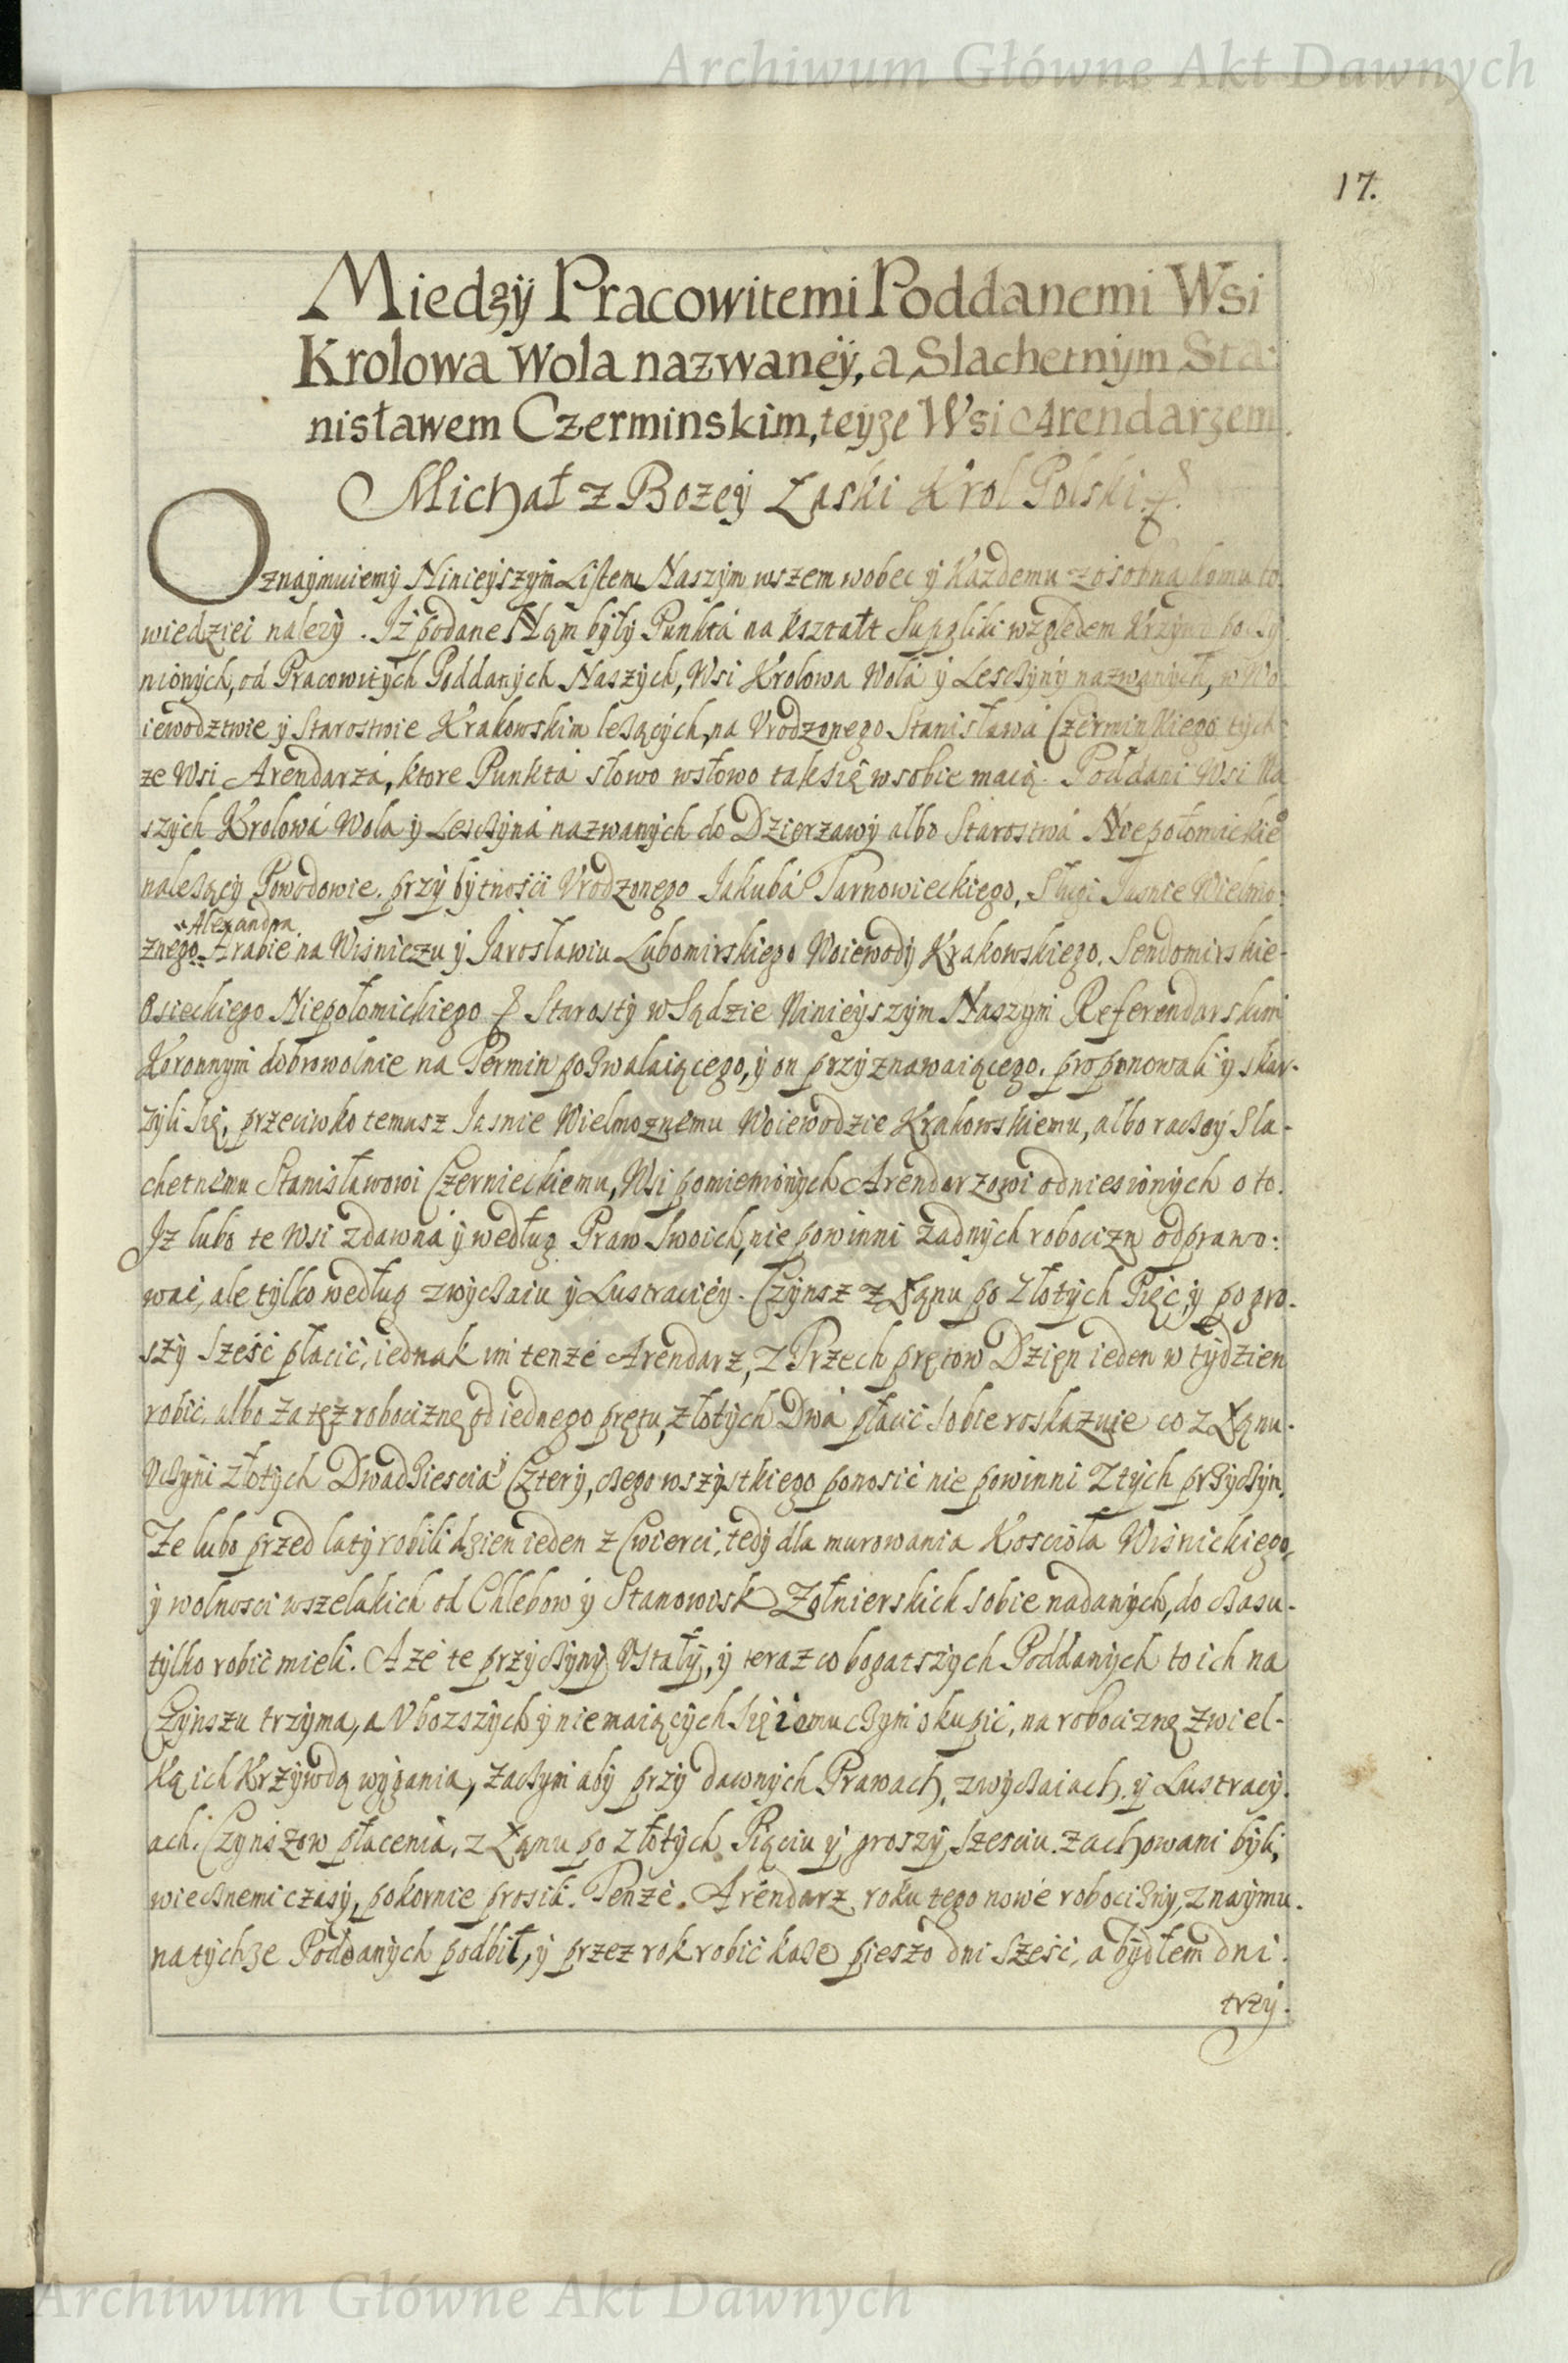 Archiwum Główne Akt Dawnych
17.
Miedzÿ Pracowitemi Poddanemi Wsi
Krolowa Wola nazwaneÿ, a Slachetnÿm Sta:
nisławem Czerminskim, teÿże Wsi Arendarzem.
Michał z Bozeÿ Łaski Krol Polski. &.
Oznaÿmuiemÿ Ninieÿszÿm Listem Naszÿm wszem wobec ÿ Kazdemu zosobna komu to
wiedziec nalezÿ. Iż podane Nąm bÿłÿ Punktá na kształt Supliki względem Krzÿwd
nionÿch, od Pracowitÿch Poddanÿch Naszÿch, Wsi Krolowa Wola ÿ Lesczÿnÿ nazwanÿch, w Wo:
iewodztwie ÿ Starostwie Krakowskim leżącÿch, na Vrodzonego Stanisława Czerminskiego tÿch:
ze Wsi Arendarzá, ktore Punktá słowo wsłowo tak się wsobie maią. Poddani Wsi Na
szÿch Krolowá Wola ÿ Lesczÿna nazwanÿch do Dzierzawÿ albo Starostwá Niepołomickie
należącÿ Powodowie. przÿ bÿtnosći Vrodzonego Jakubá Tarnowieckiego, Sługi Jasnie Wielmo:
Alexandra
znego Hrabie na Wisniczu ÿ Jarosławiu Lubomirskiego Woiewodÿ Krakowskiego. Sendomirskie-
Osieckiego Niepołomickiego & Starostÿ w Sądzie Ninieÿszÿm Naszÿm Referendarskim
Koronnÿm dobrowolnie na Termin pozwalaiącego, ÿ on przÿznawaiącego. proponowali ÿ skar-
zÿli się, przeciwko temusz Jasnie Wielmożnemu Woiewodzie Krakowskiemu, albo raczeÿ Sla-
chetnemu Stanisławowi Czernieckiemu, Wsi pomienionÿch Arendarzowi odniesionÿch o to.
Iż lubo te Wsi zdawna ÿ według Praw swoich, nie powinni żadnÿch robocizn odprawo:
wać, ale tÿlko według zwÿczaiu ÿ Lustracieÿ. Czÿnsz z Łąnu po złotÿch Pięć, ÿ po gro-
szÿ sześć płacić, iednak im tenże Arendarz, z Trzech prętow Dzięn ieden w tÿdzien
robić, albo za tęż robociznę od iednego prętu, złotÿch Dwá płacić sobie roskazuie co z Łąnu.
Vczÿni złotÿch Dwadziescia Czterÿ, czego wszÿstkiego ponosić nie powinni z tÿch przÿczÿn,
Ze lubo przed latÿ robili dzien ieden z Cwierci, tedÿ dla murowania Kosciołá Wisnickiego
ÿ wolnosci wszelakich od Chlebow ÿ Stanowisk Żołnierskich sobie nadanÿch, do czasu-
tÿlko robić mieli. A że te przÿczÿnÿ Vstałÿ, ÿ teraz co bogatszÿch Poddanÿch to ich na
Czÿnszu trzÿma, a Vbozszÿch ÿ nie maiącÿch się iemu czÿm okupić, na robociznę z wiel-
ką ich Krzÿwdą wÿgania, zaczÿm abÿ przÿ dawnÿch Prawach, zwÿczaiach, ÿ Lustracÿ.
ach. Czÿnszow płacenia, z Łąnu po złotÿch Piąciu ÿ groszÿ szesciu zachowani bÿli,
wiecznemi czasÿ, pokornie prosili. Tenże. Arendarz roku tego nowe robociznÿ, z naÿmu.
na tÿchże Poddanÿch podbił, ÿ przez rok robić każe pieszo dni sześć, a bÿdłem dni.
trzÿ.
Archiwum Główne Akt Dawnych